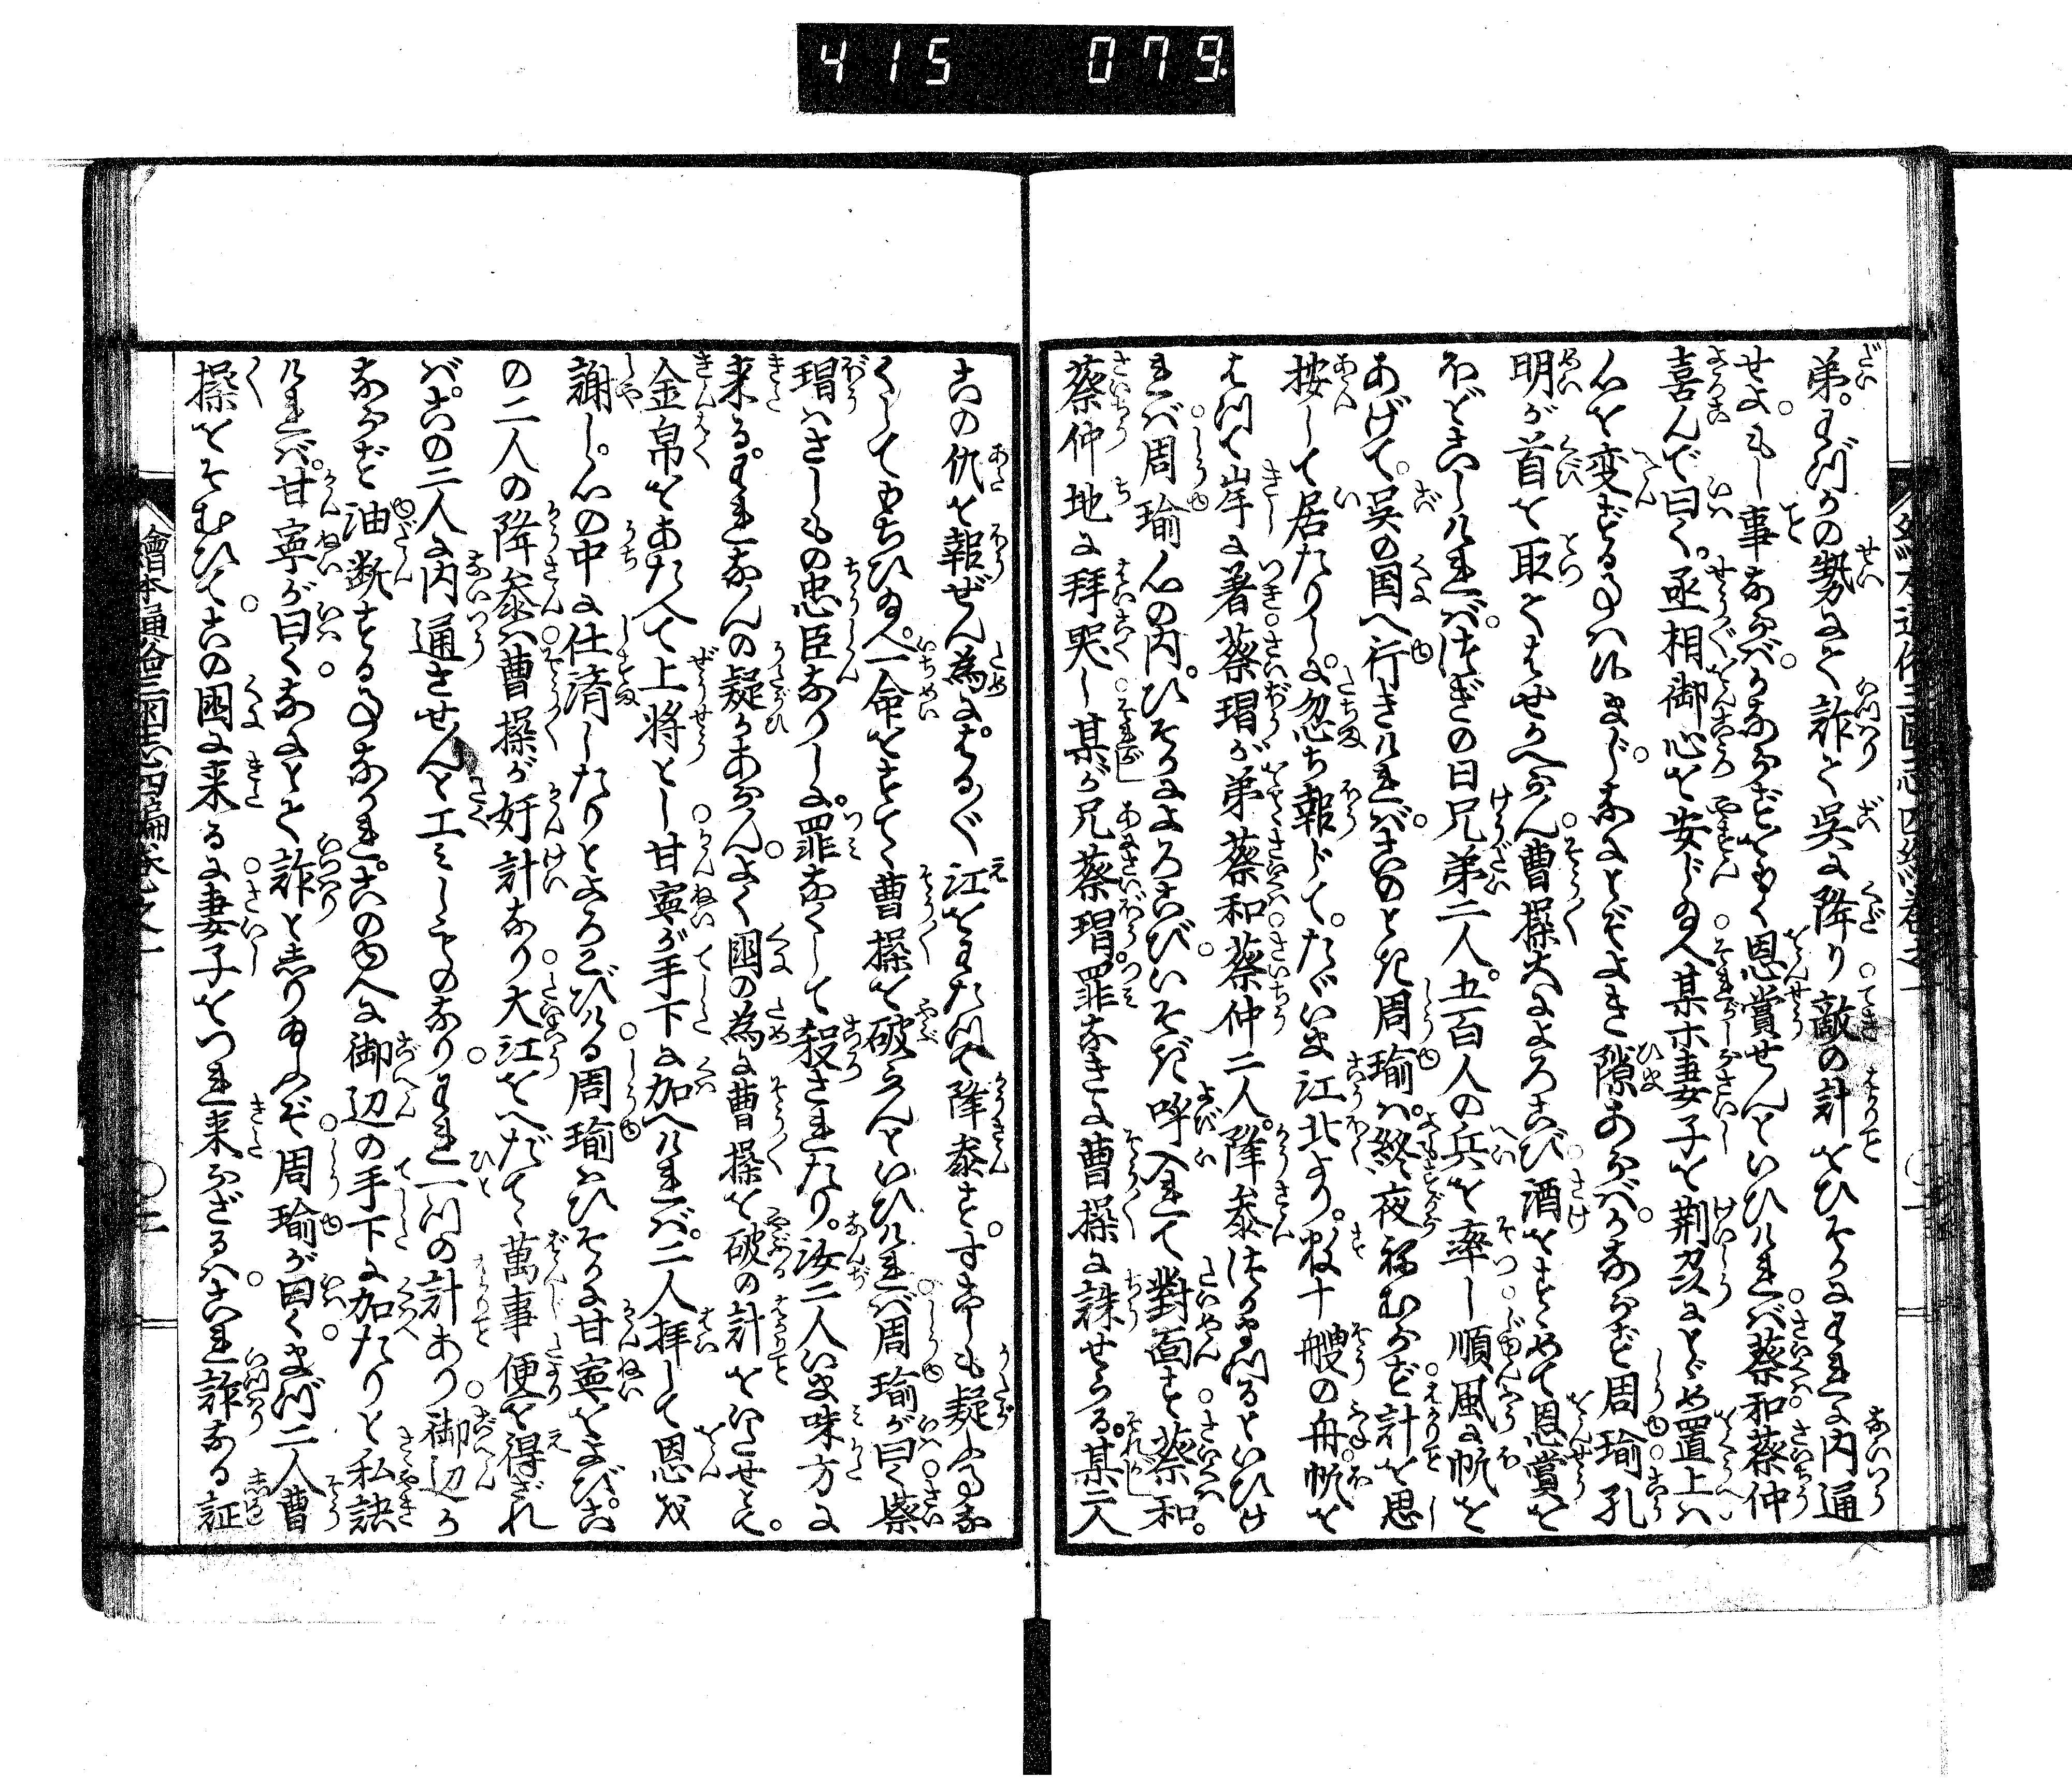 415 079
弟。わづかの勢にて詐て呉に降り敵の計をひそかにわれに内通
せよ。もし事ならばかならず重く恩賞せんといひければ蔡和蔡仲
喜んで曰く。丞相御心を安じ玉へ某等妻子を荊州にとどめ置上は
心を変ずる事は候まじ。なにとぞよき隙あらばかならず周瑜孔
明が首を取てまいせ候へん曹操大によろこび酒をすすめて恩賞を
ほどこしければ。次ぎの日兄弟二人。五百人の兵を率し順風に帆を
あげて。呉の国へ行きければ。このとき周瑜は。終夜ねむらず計を思
按して居たりしに。忽ち報じて。ただいま江北より。数十艘の舟帆を
はつて岸に著蔡瑁が弟蔡和蔡仲二人。降参つかまつるといひけ
れば周瑜心の内。ひそかによろこび。いそぎ呼入れて対面す蔡和。
蔡仲地に拜哭し某が兄蔡瑁。罪なきに曹操に誅せらる。某二人
この仇を報ぜん為に。はるばる江をわたつて降泰す。すこしも疑ふ事な
くして用ひ玉へ。一命をすてて曹操を破らんといひければ周瑜が曰く蔡
瑁はさしもの忠臣なりしに。罪なくして殺されたり。汝二人いま味方に
来る。われなんの疑かあらん。よく国の為に曹操を破の計をいたせとて。
金帛をあたへて上将とし甘寧が手下に加へければ。二人拝して恩を
謝し。心の中に仕済したりとよろこびける周瑜はひそかに甘寧をよび。こ
の二人の降参は曹操が奸計なり大江をへだてて萬事便を得ざれ
ば。この二人に内通させんと工みしものなりわれ一つの計あり御辺か
ならず油断する事なかれ。この内へに御辺の手下に加たりと私語
ければ。甘寧が曰くなにとて詐としり玉ふぞ周瑜が曰くまづ二人曹
操をそむひてこの国に来るに妻子をつれ来らざるはこれ詐なる証
繪本通俗三国志四編巻之一